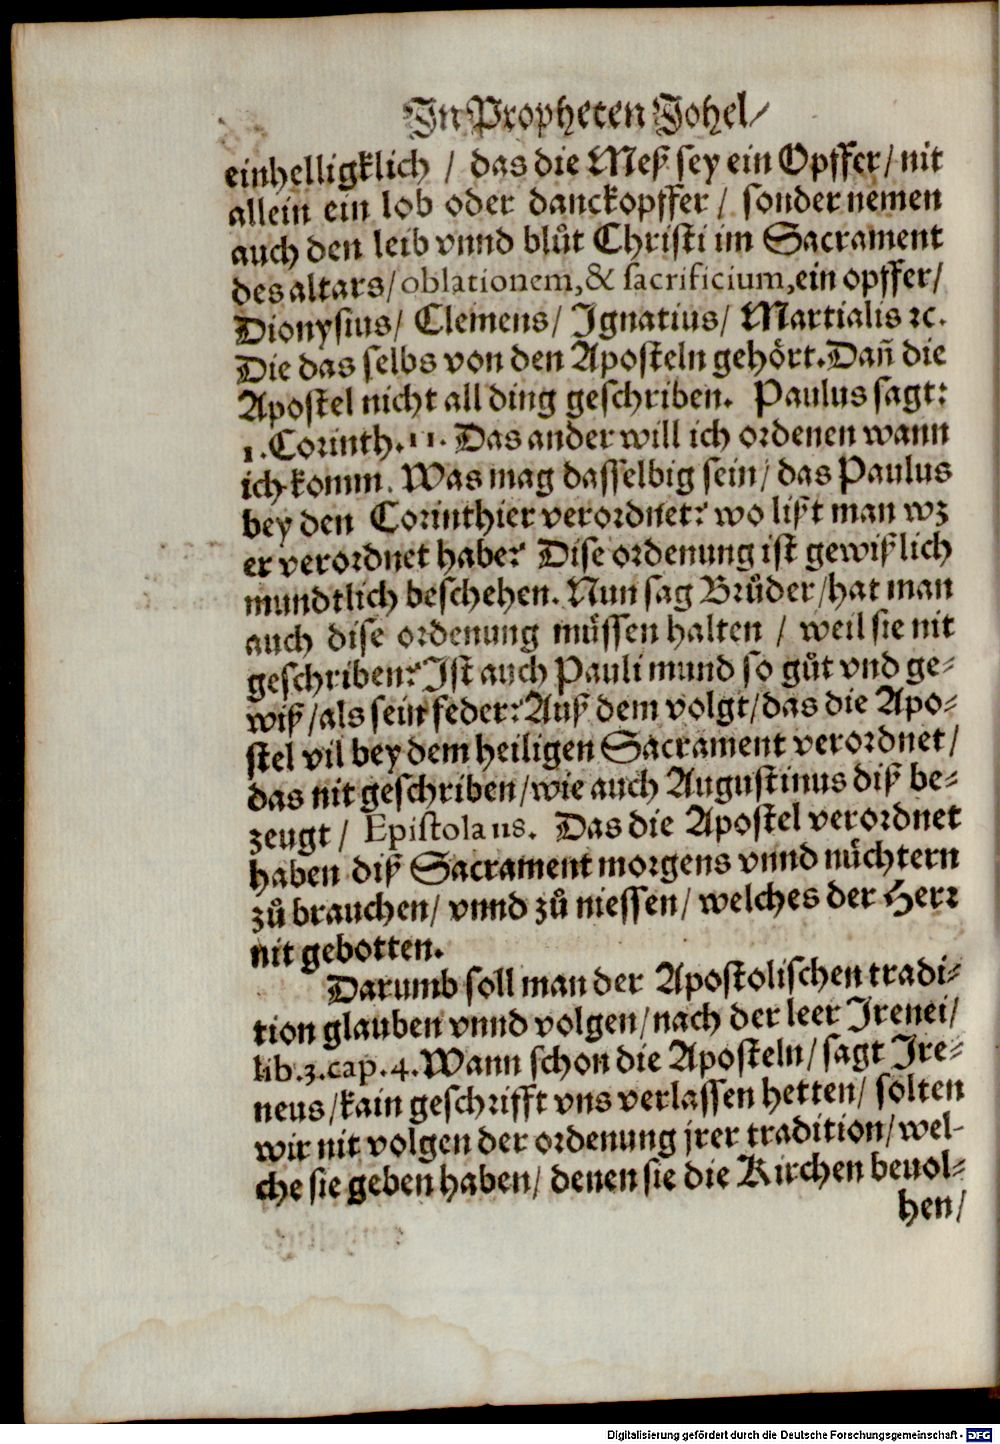 In Propheten Johel/
einhelligklich / das die Meß sey ein Opffer/ nit
allein ein lob oder danckopffer / sonder nemen
auch den leib vnnd blůt Christi im Sacrament
des altars/ oblationem, & sacrificium, ein opffer/
Dionysius/ Clemens/ Ignatius/ Martialis ꝛc.
Die das selbs von den Aposteln gehört. Dañ die
Apostel nicht all ding geschriben. Paulus sagt:
1. Corinth. 11. Das ander will ich ordenen wann
ich komm. Was mag dasselbig sein/ das Paulus
bey den Corinthier verordnet? wo lißt man wz
er verordnet habe? Dise ordenung ist gewißlich
mundtlich beschehen. Nun sag Brůder/ hat man
auch dise ordenung müssen halten / weil sie nit
geschriben? Ist auch Pauli mund so gůt vnd ge-
wiß/ als sein feder? Auß dem volgt/ das die Apo-
stel vil bey dem heiligen Sacrament verordnet/
das nit geschriben/ wie auch Augustinus diß be-
zeugt / Epistola 118. Das die Apostel verordnet
haben diß Sacrament morgens vnnd nüchtern
zů brauchen/ vnnd zů niessen/ welches der Herr
nit gebotten.
Darumb soll man der Apostolischen tradi-
tion glauben vnnd volgen/ nach der leer Irenei/
lib. 3. cap. 4. Wann schon die Aposteln/ sagt Ire-
neus/ kain geschrifft vns verlassen hetten/ solten
wir nit volgen der ordenung jrer tradition/ wel-
che sie geben haben/ denen sie die Kirchen beuol-
hen/
Digitalisierung gefördert durch die Deutsche Forschungsgemeinschaft - DFG